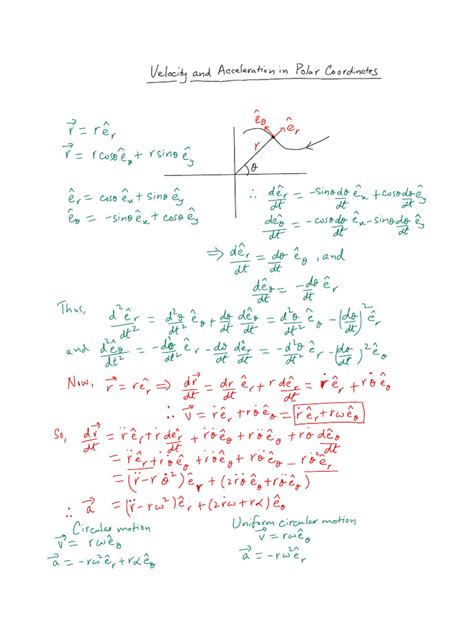 Velocity and Acceleration in Polar Coordinates
r⃗ = r ê_r
r⃗ = r cosθ ê_x + r sinθ ê_y
ê_θ ê_r
r θ
ê_r = cosθ ê_x + sinθ ê_y
ê_θ = -sinθ ê_x + cosθ ê_y
∴ dê_r/dt = -sinθ dθ/dt ê_x + cosθ dθ/dt ê_y
dê_θ/dt = -cosθ dθ/dt ê_x - sinθ dθ/dt ê_y
⇒ dê_r/dt = dθ/dt ê_θ, and
dê_θ/dt = -dθ/dt ê_r
Thus, d²ê_r/dt² = d²θ/dt² ê_θ + dθ/dt dê_θ/dt = d²θ/dt² ê_θ - (dθ/dt)² ê_r
and d²ê_θ/dt² = -d²θ/dt² ê_r - dθ/dt dê_r/dt = -d²θ/dt² ê_r - (dθ/dt)² ê_θ
Now, r⃗ = r ê_r ⇒ dr⃗/dt = dr/dt ê_r + r dê_r/dt = ṙ ê_r + r θ̇ ê_θ
∴ v⃗ = ṙ ê_r + r θ̇ ê_θ = ṙ ê_r + rω ê_θ
So, dv⃗/dt = r̈ ê_r + ṙ dê_r/dt + ṙ θ̇ ê_θ + r θ̈ ê_θ + r θ̇ dê_θ/dt
= r̈ ê_r + ṙ θ̇ ê_θ + ṙ θ̇ ê_θ + r θ̈ ê_θ - r θ̇² ê_r
= (r̈ - r θ̇²) ê_r + (2ṙ θ̇ ê_θ + r θ̈ ê_θ)
∴ a⃗ = (r̈ - rω²) ê_r + (2ṙω + rα) ê_θ
Circular motion
v⃗ = rω ê_θ
a⃗ = -rω² ê_r + rα ê_θ
Uniform circular motion
v⃗ = rω ê_θ
a⃗ = -rω² ê_r